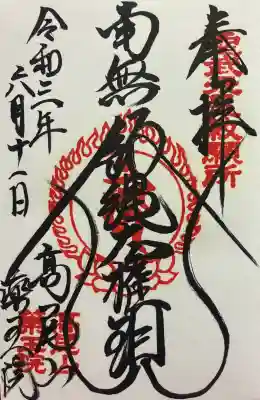 奉拝
南無飯縄大権現
高尾山
薬王院
令和二年
六月十一日